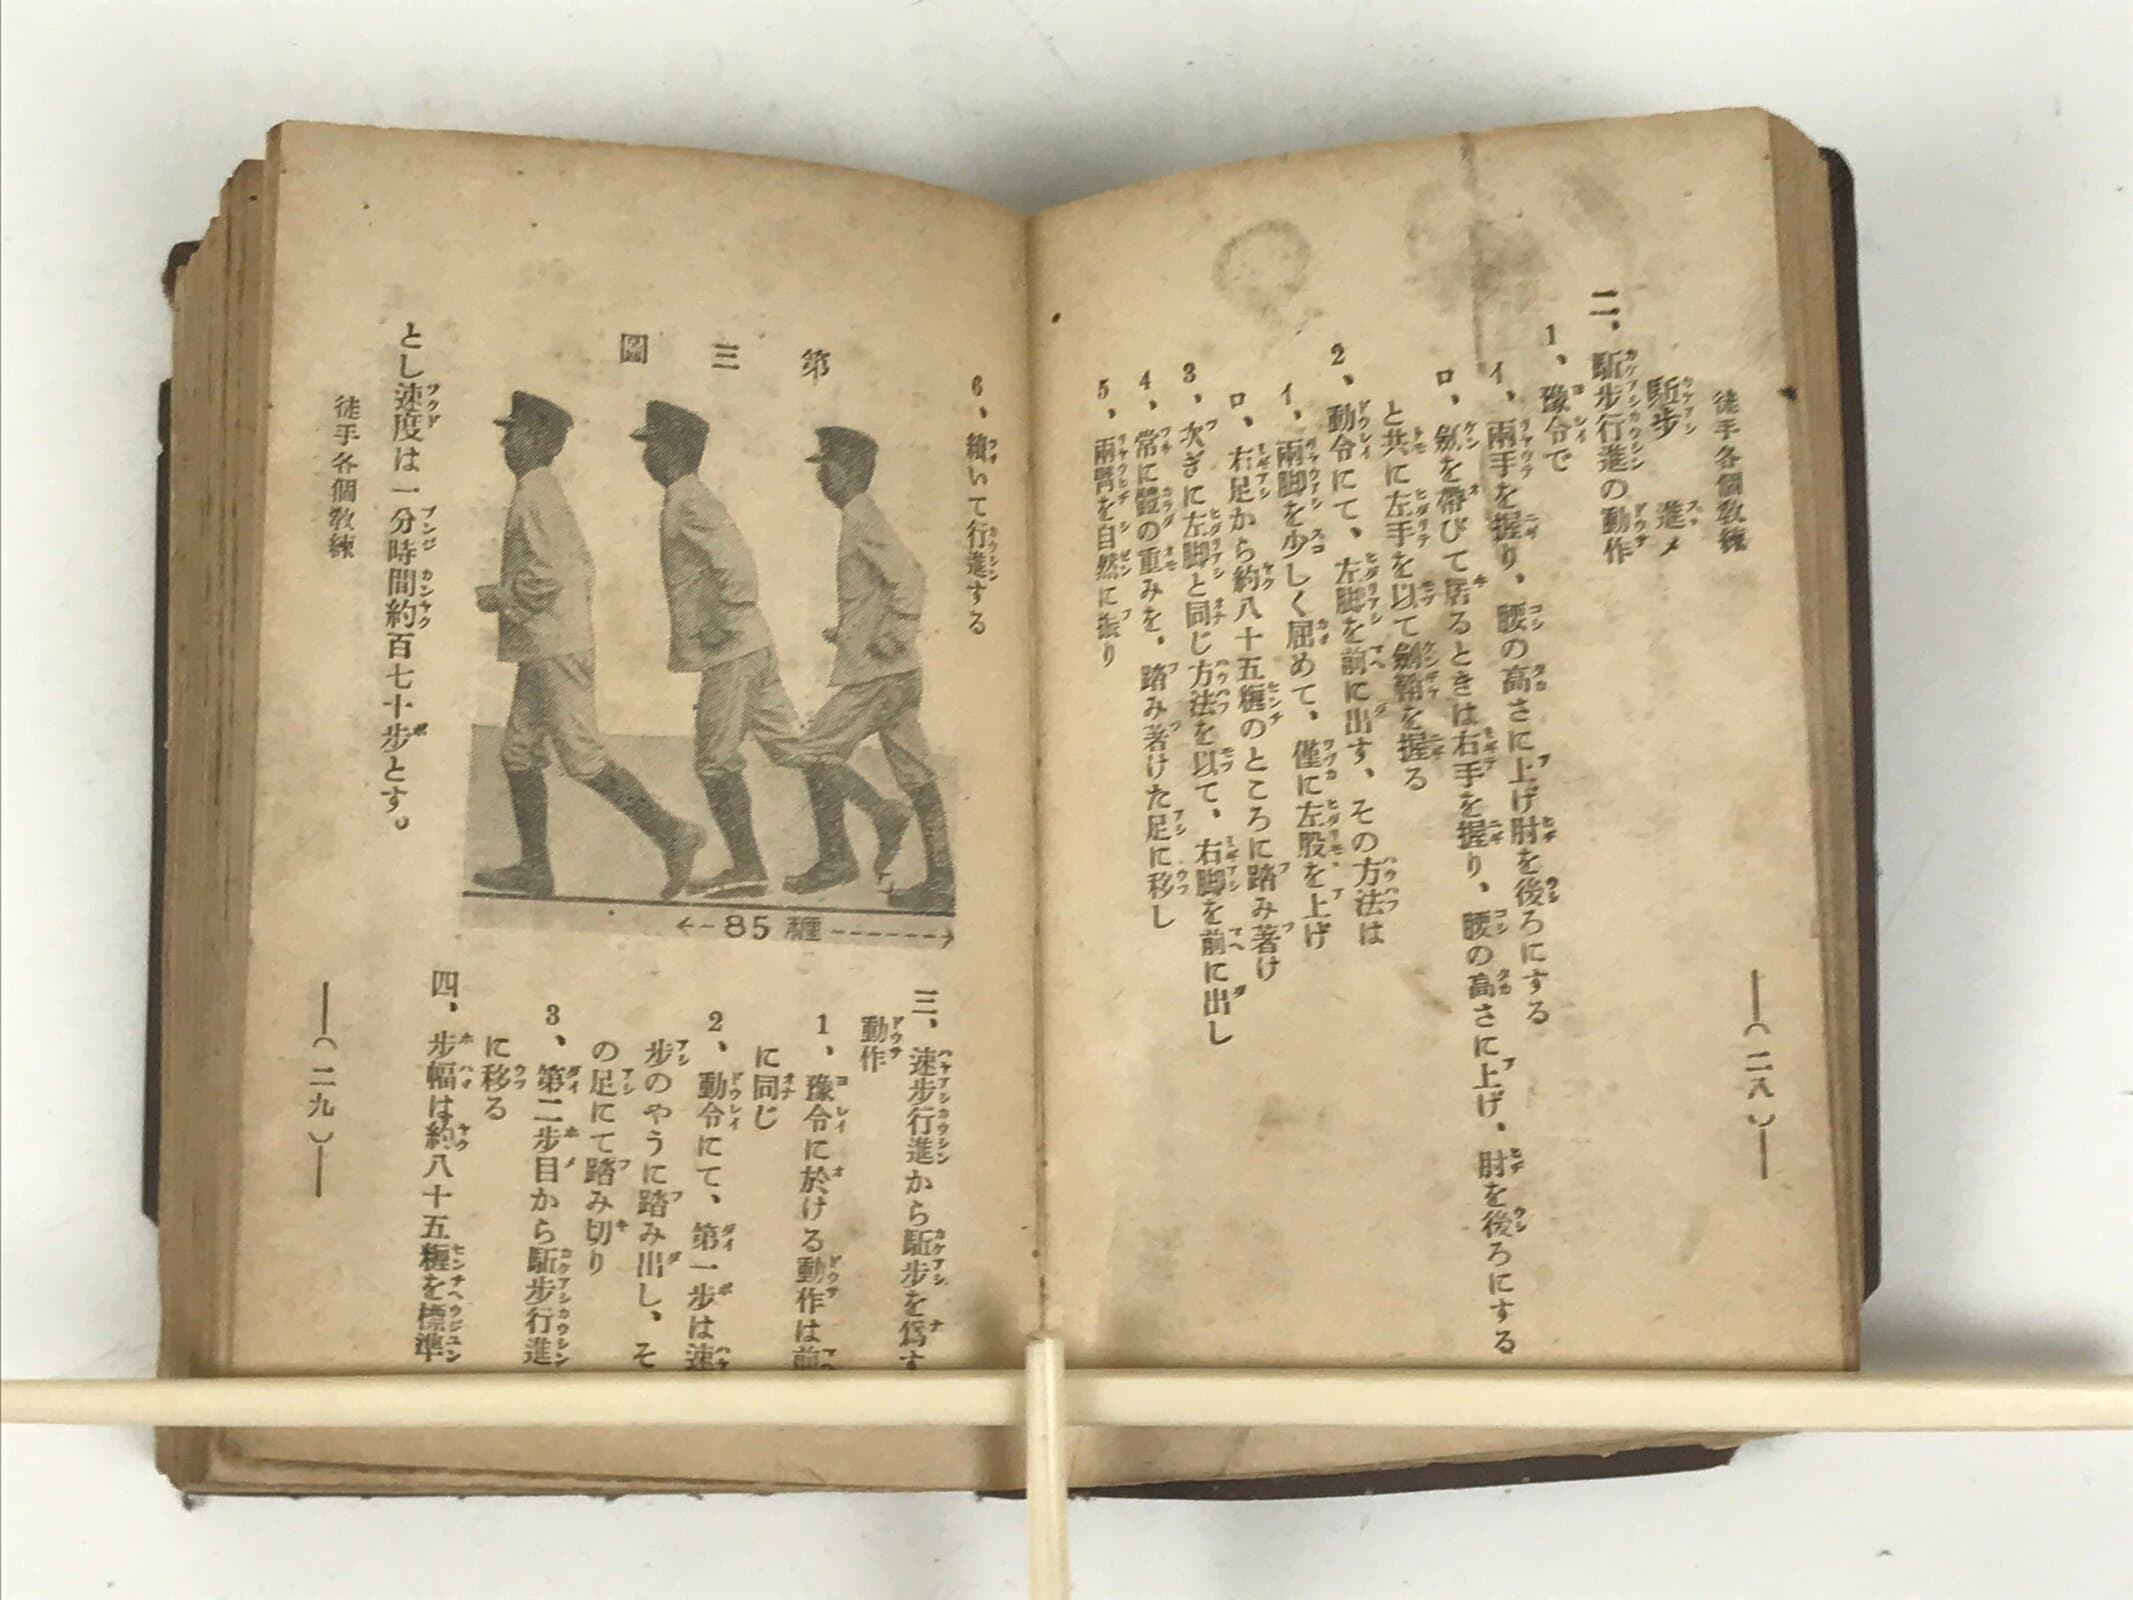 徒手各個敎練
駈步 進メ
二、駈步行進の動作
1、豫令で
イ、兩手を握り、腰の高さに上げ肘を後ろにする
ロ、劍を帶びて居るときは右手を握り、腰の高さに上げ、肘を後ろにする
と共に左手を以て劍鞘を握る
2、動令にて、左脚を前に出す、その方法は
イ、兩脚を少しく屈めて、僅に左股を上げ
ロ、右足から約八十五糎のところに踏み著け
3、次ぎに左脚と同じ方法を以て、右脚を前に出し
4、常に體の重みを、踏み著けた足に移し
5、兩臂を自然に振り
―(二八)―
6、續いて行進する
第三圖
←-85糎------→
三、速步行進から駈步を爲す
動作
1、豫令に於ける動作は前
に同じ
2、動令にて、第一步は速
步のやうに踏み出し、そ
の足にて踏み切り
3、第二步目から駈步行進
に移る
四、步幅は約八十五糎を標準
とし速度は一分時間約百七十步とす。
徒手各個敎練
―(二九)―